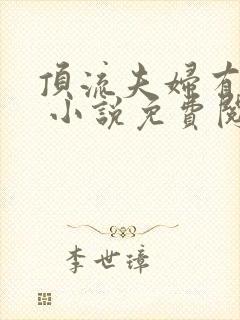 頂流夫婦有
小說免費閱
李世璋